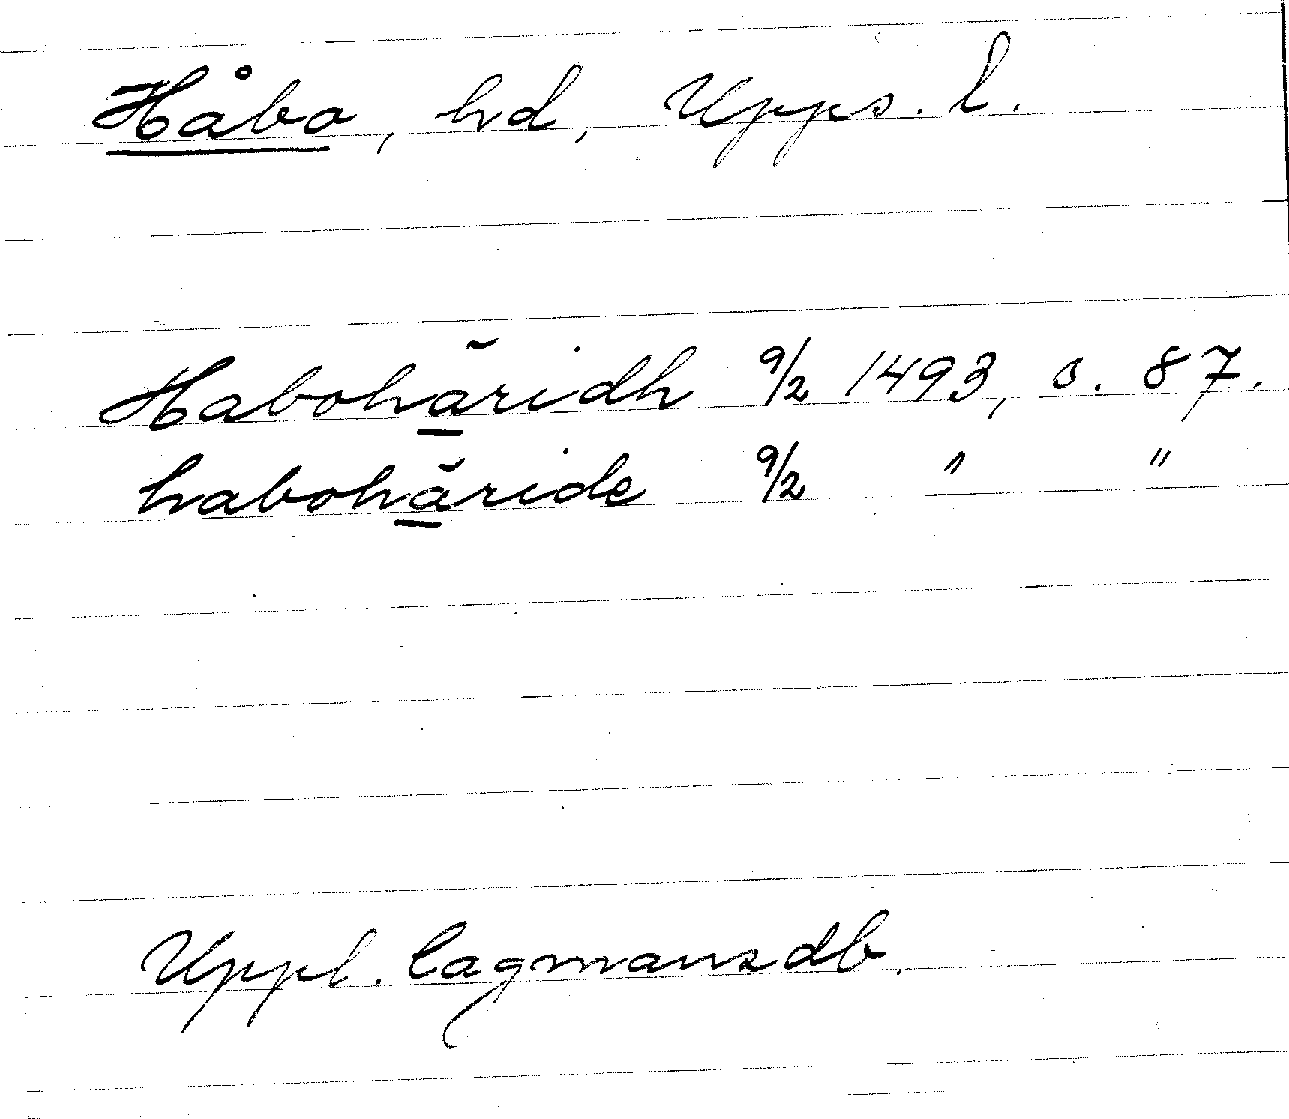 Håbo, hd, Upps. l.
Habohäridh 9/2 1493, s. 87.
habohäride 9/2 " "
Uppl. lagmansdb.